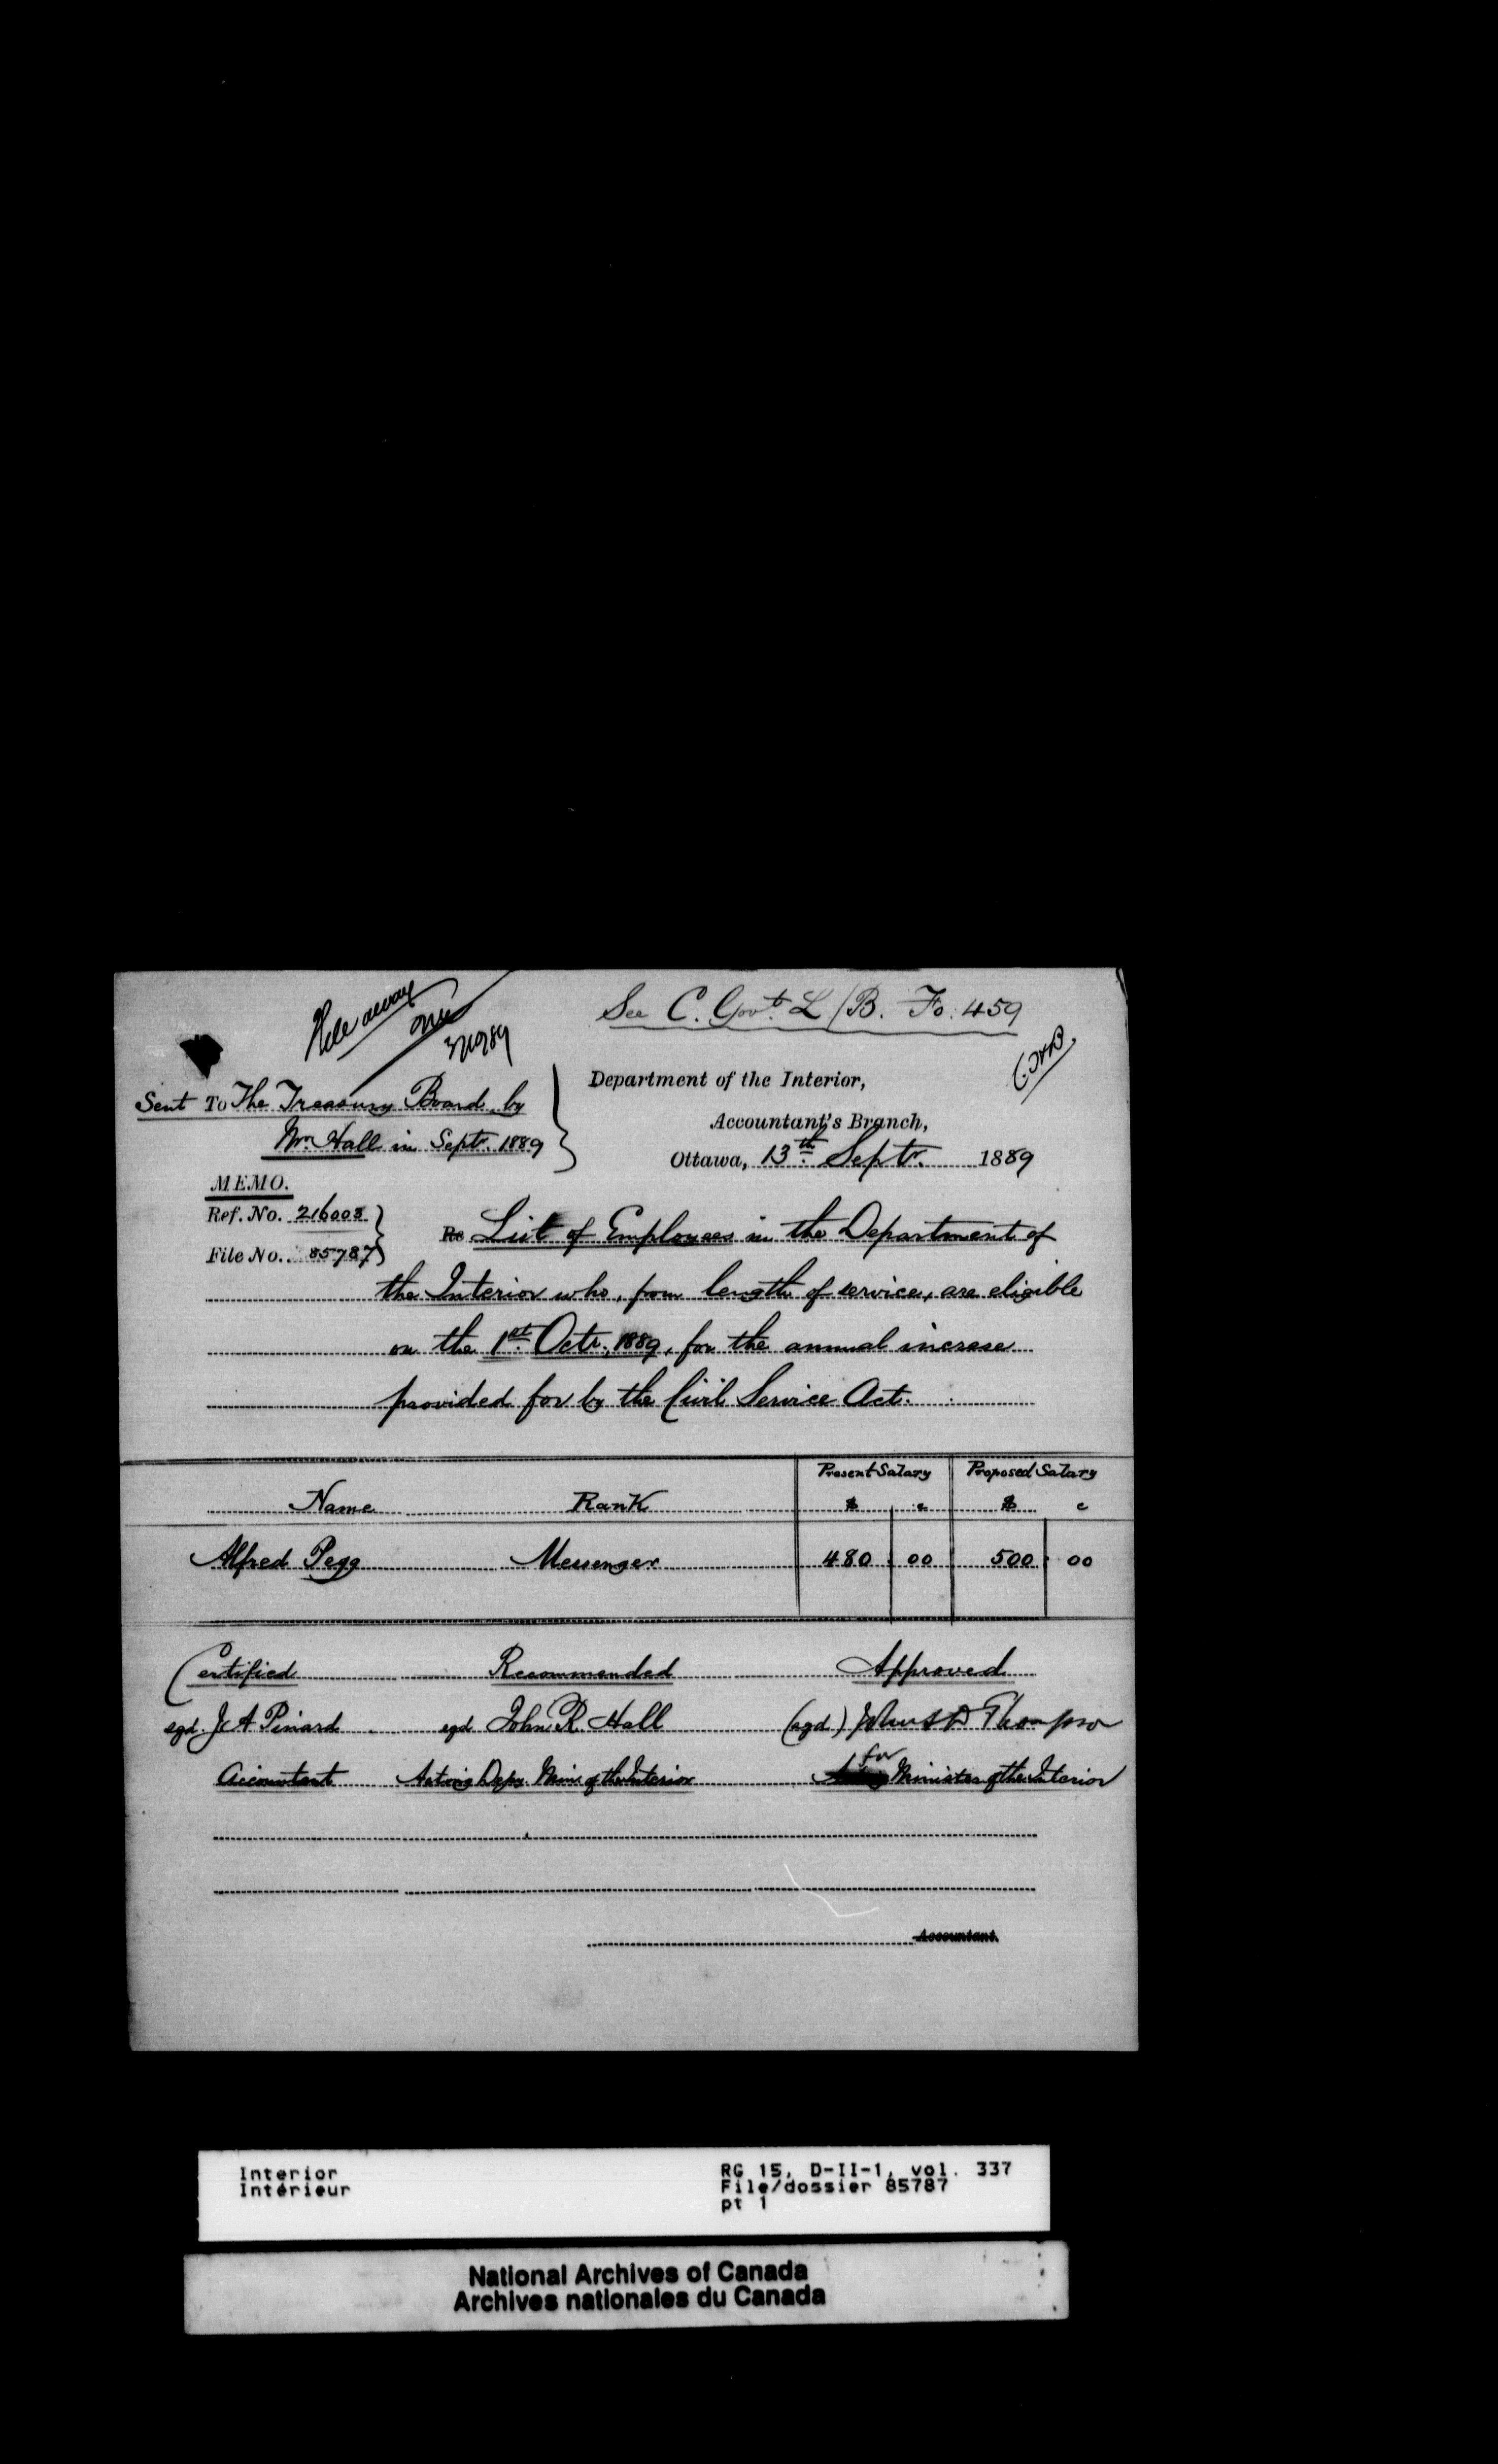 See C. Govt. L/B. Fo. 459
File away
Sent To The Treasury Board by
Mr. Hall in Septr. 1889
Department of the Interior,
Accountant's Branch,
Ottawa, 13th Septr. 1889
MEMO.
Ref. No. 216003
File No. 85787
Re List of Employees in the Department of
the Interior who, from length of service, are eligible
on the 1st Octr. 1889, for the annual increase
provided for by the Civil Service Act.
Name Rank Present Salary Proposed Salary
$ c $ c
Alfred Pegg Messenger 480 00 500 00
Certified Recommended Approved
sgd. J A Pinard sgd John R. Hall (sgd.) Jno S D Thompson
Accountant Acting Depy. Min. of the Interior for Minister of the Interior
Accountant.
Interior
Intérieur
RG 15, D-II-1, vol. 337
File/dossier 85787
pt 1
National Archives of Canada
Archives nationales du Canada